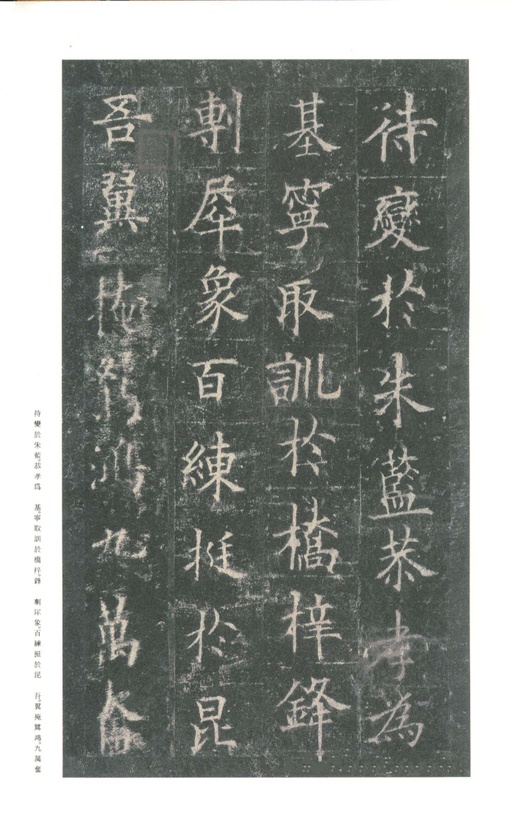 待變於朱藍恭孝為
基寧取訓於橋梓鋒
剸犀象百練挺於昆
吾翼掩鴛鴻九萬奮
待變於朱藍。恭孝爲　基。寧取訓於橋梓。鋒　剸犀象。百練挺於昆　吾。翼掩鴛鴻。九萬奮